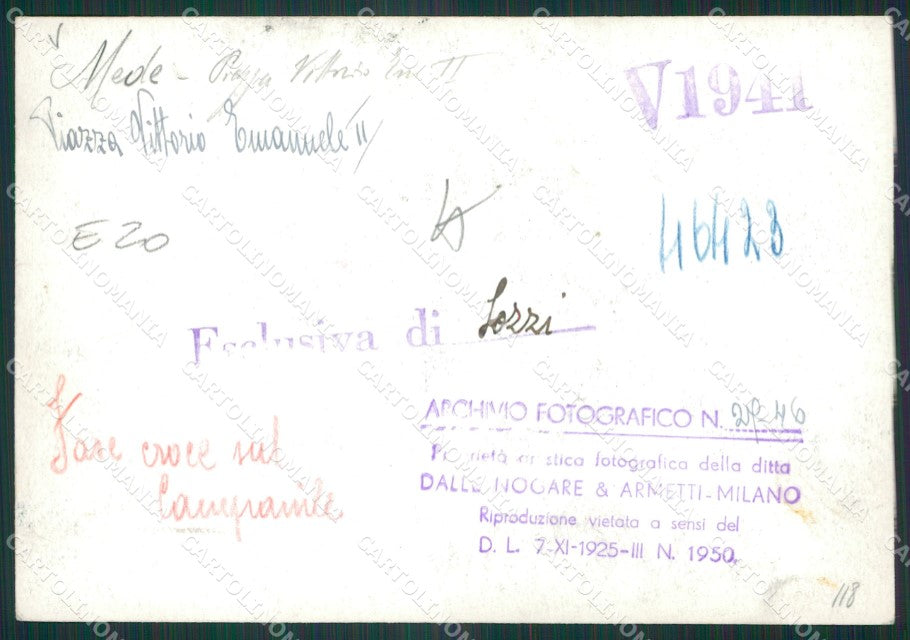 Mede - Piazza Vittorio Em. II
V 1941
Piazza Vittorio Emanuele II
E 20
46423
Esclusiva di Lozzi
Fare croce sul
Campanile
ARCHIVIO FOTOGRAFICO N. 2946
Proprietà artistica fotografica della ditta
DALLE NOGARE & ARMETTI - MILANO
Riproduzione vietata a sensi del
D. L. 7-XI-1925-III N. 1950.
118
CARTOLINOMANIA